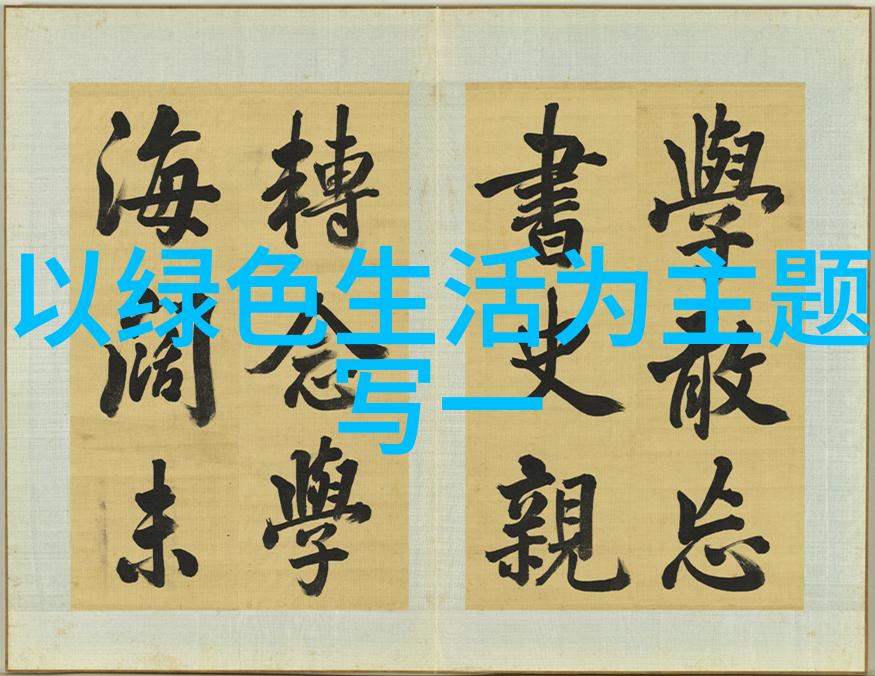 以绿色生活为主题
写一
學敢忘
書史親
轉念學
海闊未